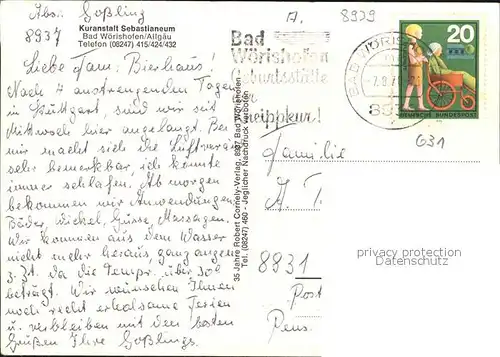 Abs: Goßling
8937
Kuranstalt Sebastianeum
Bad Wörishofen/Allgäu
Telefon (08247) 415/424/432
Liebe Fam. Bierhaus!
Nach 4 anstrengenden Tagen
in Stuttgart, sind wir seit
Mittwoch hier angelangt. Bei
mir macht sich die Luftveränd.
sehr bemerkbar, ich könnte
immer schlafen. Ab morgen
bekommen wir Anwendungen
Bäder, Wickel, Güsse, Massagen.
Wir kommen aus dem Wasser
nicht mehr heraus, ganz angen.
z. Zt. da die Tempr. über 30°
beträgt. Wir wünschen Ihnen
noch recht erholsame Ferien
u. verbleiben mit den besten
Grüßen Ihre Goßlings.
35 Jahre Robert Cornely-Verlag, 8937 Bad Wörishofen
Tel. (08247) 460 - Jeglicher Nachdruck verboten
A. 8939
Bad
Wörishofen
Geburtsstätte
der
Kneippkur!
BAD WÖRIS
20
DEUTSCHE BUNDESPOST
G31
Familie
A. T.
8931
Post
Pens.
privacy protection
Datenschutz